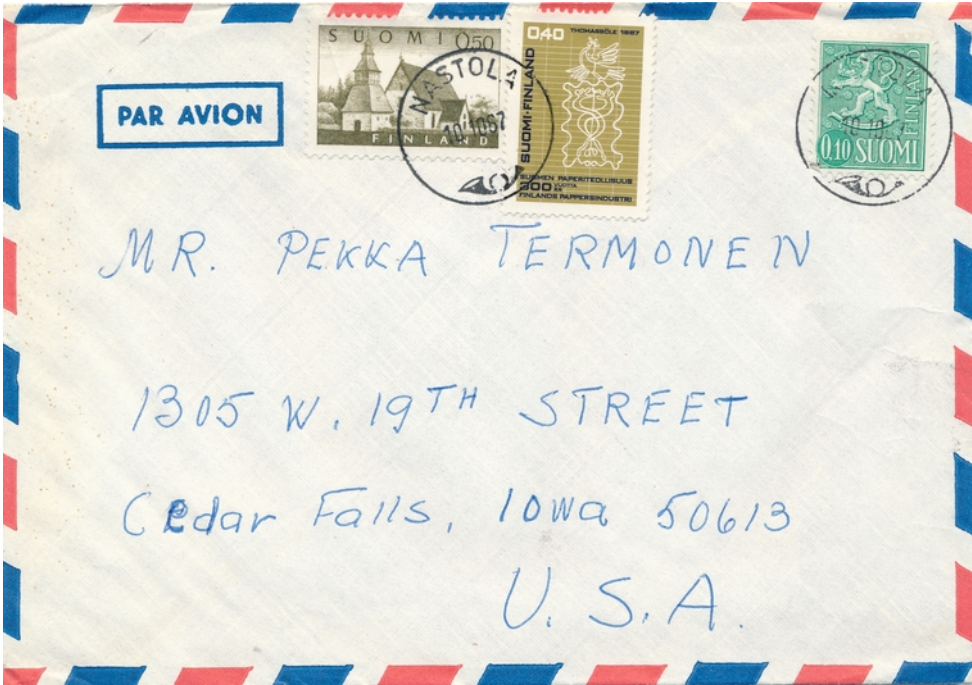 SUOMI 0,50
FINLAND
NASTOLA
10.10.67
0,40 THOMASBÖLE 1667
SUOMI-FINLAND
SUOMEN PAPERITEOLLISUUS
300 VUOTTA ÅR
FINLANDS PAPPERSINDUSTRI
NASTOLA
FINLAND
0,10 SUOMI
PAR AVION
MR. PEKKA TERMONEN
1305 W. 19TH STREET
Cedar Falls, Iowa 50613
U.S.A.